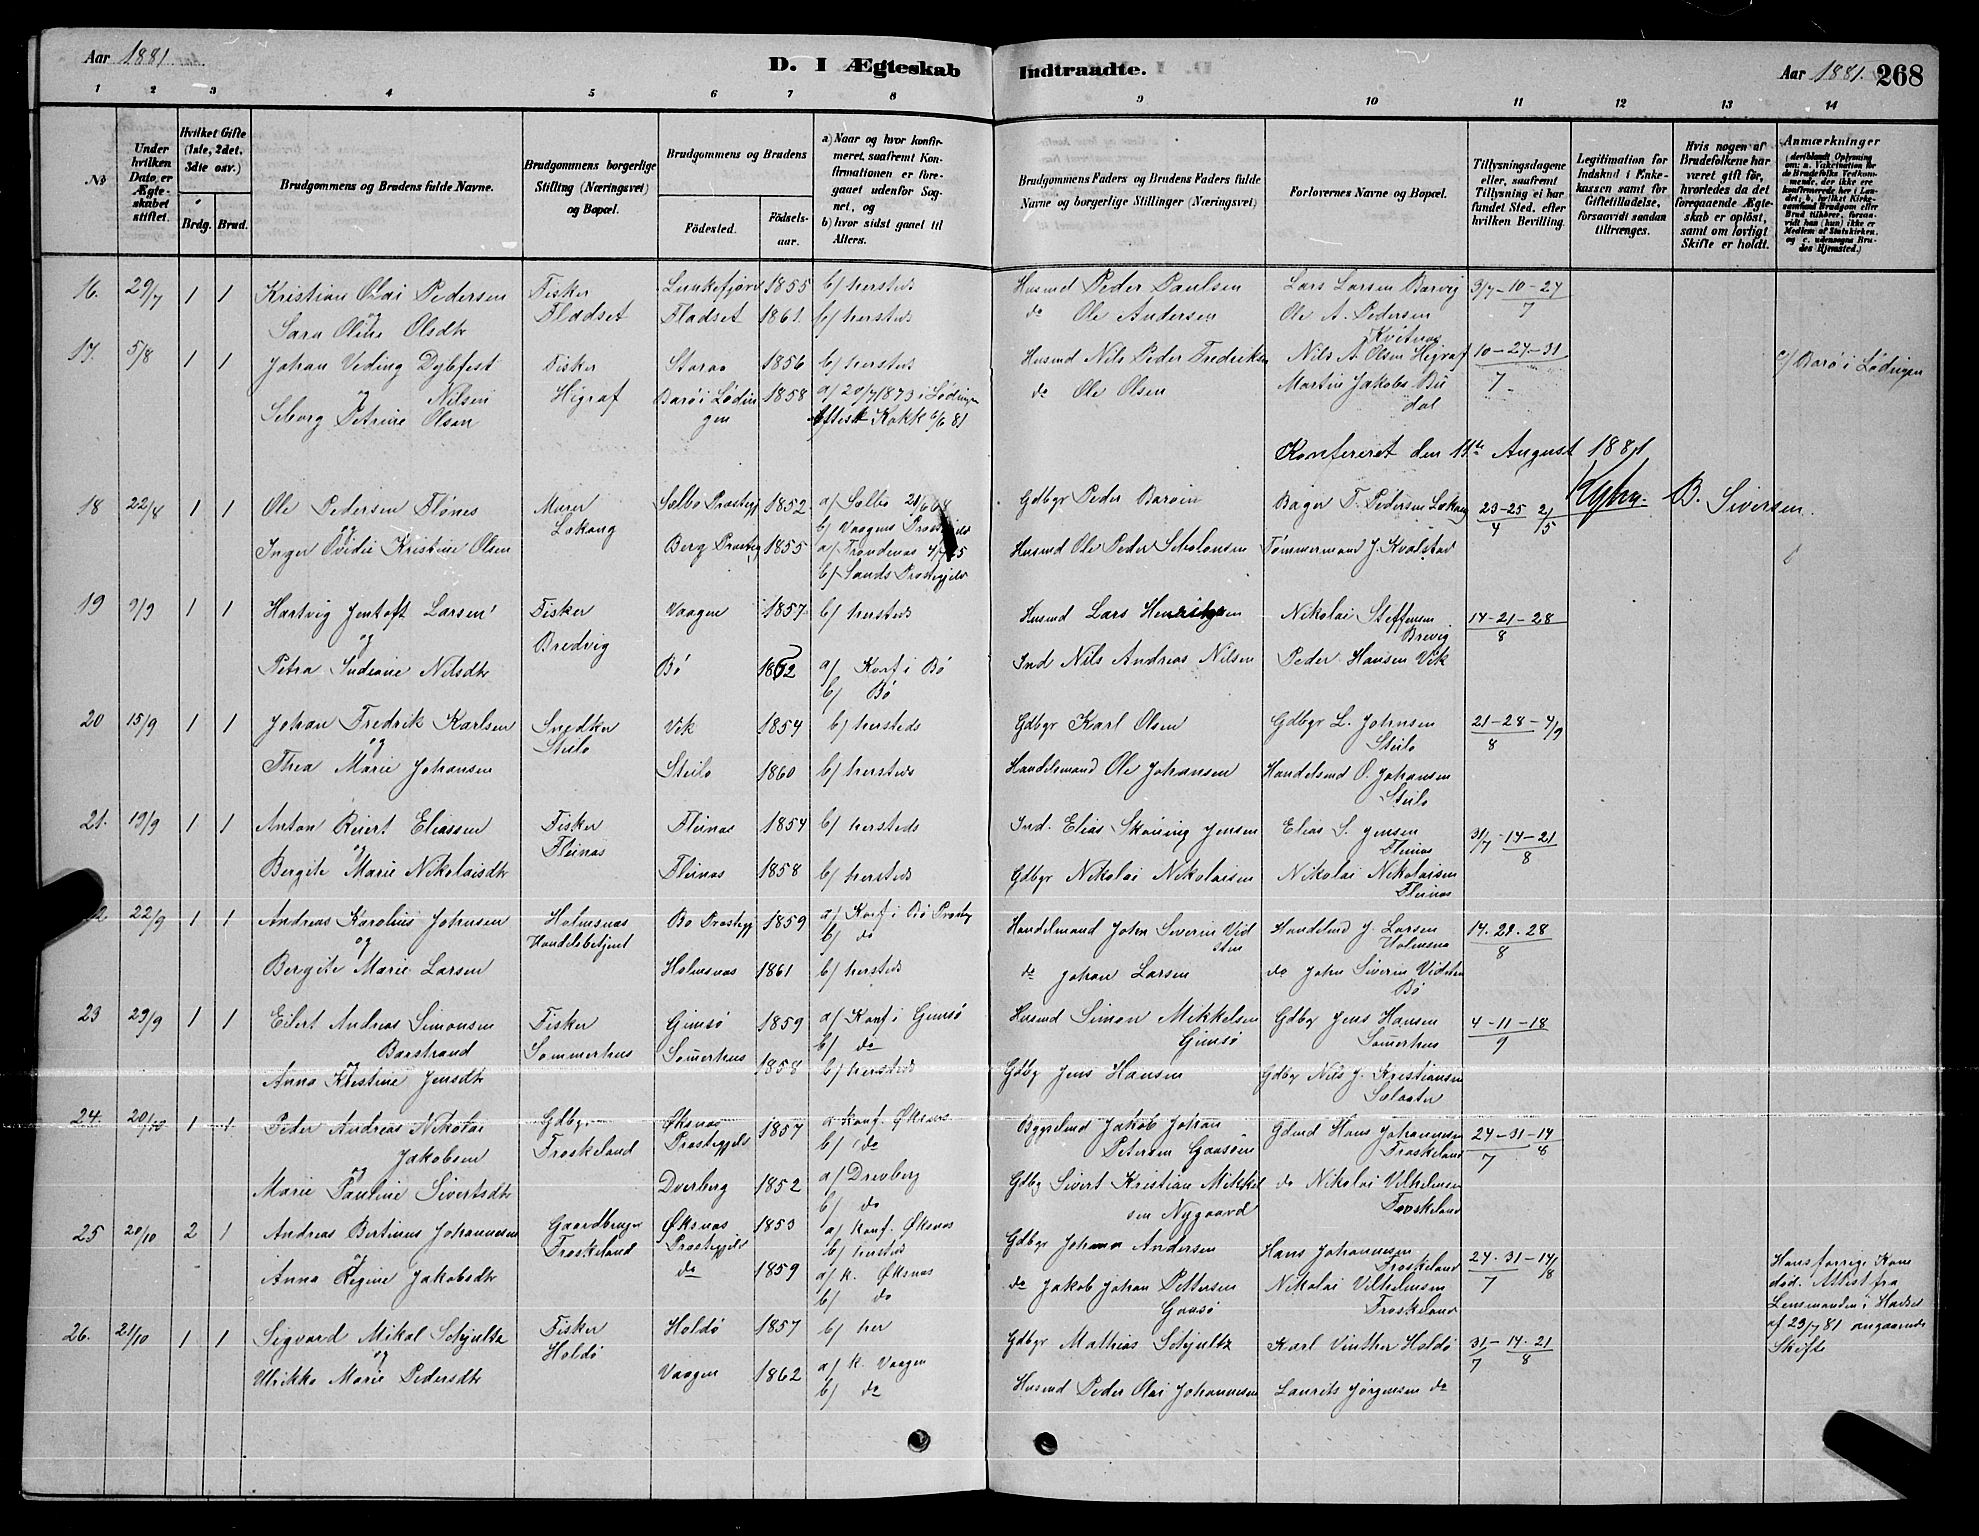 Aar 1881
D. I Ægteskab Indtraadte.
Aar 1881. 268
1 2 3 4 5 6 7 8 9 10 11 12 13 14
No
Under hvilken Dato er Ægteskabet stiftet.
Hvilket Gifte (1ste, 2det, 3die osv.)
Brdg. Brud.
Brudgommens og Brudens fulde Navne.
Brudgommens borgerlige Stilling (Næringsvei) og Bopæl.
Brudgommens og Brudens
Fødested.
Fødselsaar.
a) Naar og hvor konfirmeret, saafremt Konfirmationen er foregaaet udenfor Sognet, og
b) hvor sidst gaaet til Alters.
Brudgommens Faders og Brudens Faders fulde Navne og borgerlige Stillinger (Næringsvei)
Forlovernes Navne og Bopæl.
Tillysningsdagene eller, saafremt Tillysning ei har fundet Sted, efter hvilken Bevilling.
Legitimation for Indskud i Enkekassen samt for Giftetilladelse, forsaavidt saadan tiltrænges.
Hvis nogen af Brudefolkene har været gift før, hvorledes da det foregaaende Ægteskab er opløst, samt om lovligt Skifte er holdt.
Anmærkninger
16. 29/7 1 1 Kristian Olai Pedersen Fisker 1855 b/ hersteds Husmd Peder Paulsen Lars Larsen Barvig 3/7-10-24
og
Sara Oline Olsdtr Fladset Fladset 1861. b/ hersteds do Ole Andersen Ole A. Pedersen 7
17. 5/8 1 1 Johan Veding Dybfest Fisker 1856 b/ hersteds Husmd Nils Peder Nils A. Olsen Higraf 10-24-31
og Nilsen Higraf Barø i Lødingen 1858 a/ 20/7 1873 i Lødingen do Ole Olsen Martin Jakobs 7 c/ Barø i Lødingen
Petrine Olsen
Konfereret den 11te August 1881
B. Siversen
18 22/8 1 1 Ole Pedersen Flønes Murer Sælbo Præstegj 1852 a/ Sælbo Gdbgr Peder Pedersen 23-25 2/5
og b/ Vaagens Præstegjeld 4
Inger Kristine Olsen Berg Præsteg 1855 a/ Trondenæs Husmd Ole Peder Tømmermand J. Kvalstad
b/ Sands Præstegjeld
19 9/9 1 1 Hartvig Jentoft Larsen Fisker Vaagen 1857 b/ hersteds Husmd Lars Henriksen Nikolai Steffensen 14-21-28
og Bredvig Brevig 8
Petra Indiane Nilsdtr Bø 1862 a/ Konf i Bø Ind Nils Andreas Nilsen Peder Hansen Vik
b/ Bø
20 15/9 1 1 Johan Fredrik Karlsen Snedker Vik 1854 b/ hersteds Gdbgr Karl Olsen Gdbgr L. Johnsen 21-28-4/9
og Steilo Steilo 8
Thea Marie Johansen Steilo 1860 b/ hersteds Handelsmand Ole Johansen Handelsmd O. Johansen
Steilo
21. 19/9 1 1 Anton Reiert Eliassen Fisker Fleinæs 1854 b/ hersteds Ind. Elias Skaning Jensen Elias S. Jensen 31/7-14-21
og Fleinæs Fleinæs 8
Bergite Marie Nikolaisdtr Fleinæs 1858 b/ hersteds Gdbgr Nikolai Nikolaisen Nikolai Nikolaisen
Fleinæs
22 22/9 1 1 Andreas Karolius Johnsen Holmsnæs Bø Præstegj 1859 a/ Konf i Bø Præsteg Handelmand John Siverin Vidsten Handelmd J. Larsen 14.22.28
og Handelsbetjent b/ do Holmsnæs 8
Bergite Marie Larsen Holmsnæs 1861 b/ hersteds do Johan Larsen do John Siverin Vidsten
Bø
23 29/9 1 1 Eilert Andreas Simonsen Fisker Gimsø 1859 a/ Konf i Gimsø Husmd Simon Mikkelsen Gdbg Jens Hansen 4-11-18
Barstrand Sommerhus Somerhus b/ do Gimsø Somerhus 9
og
Anna Kristine Jensdtr 1858 b/ hersteds Gdbg Jens Hansen Gdbg Nils J. Kristiansen
24. 20/10 1 1 Peder Andreas Nikolai Gdbgr Øksnæs 1857 a Konf. Øksnæs Jakob Johan Gdmd Hans Johannesen 24-31-14
Jakobsen Froskeland Præstegjeld b/ do Petersen Gaasøen Froskeland 7 8
og
Marie Pauline Sivertsdtr Dverberg 1852 a/ Drevberg Gdbg Sivert Kristian Mikkelsen Nygaard do Nikolai Vilhelmsen
b/ do Froskeland
25 20/10 2 1 Andreas Bertinus Johannesen Gaardbruger Øksnæs 1853 a/ Konf. Øksnæs Gdbgr Johan Andersen Hans Johannesen 24-31-14/8
og Froskeland Præstegjeld b/ hersteds Froskeland 7
Anna Regine Jakobsdtr do 1859 a/ K. Øksnæs do Jakob Johan Pettersen Nikolai Vilhelmsen
b/ do Gaasø Froskeland
Hans forrige Kone død. Attest fra Lensmanden i Hadsel af 29/7 81 angaaende Skifte
26. 21/10 1 1 Sigvard Mikal Schjultz Fisker Holdø 1857 b/ her Gdbgr Mathias Schjultz Karl Vinther Holdø 31-14-21
og Holdø 7 8
Ulrikka Marie Pedersdtr Vaagen 1862 a/ K. Vaagen Husmd Peder Olai Johannesen Laurits Jørgensen do
b/ do